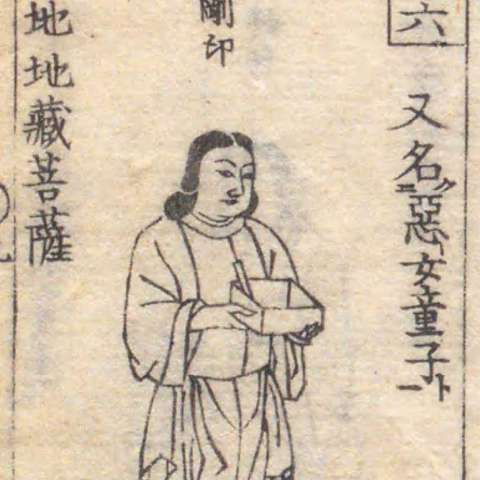 六
又名惡女童子
剛印
地地藏菩薩